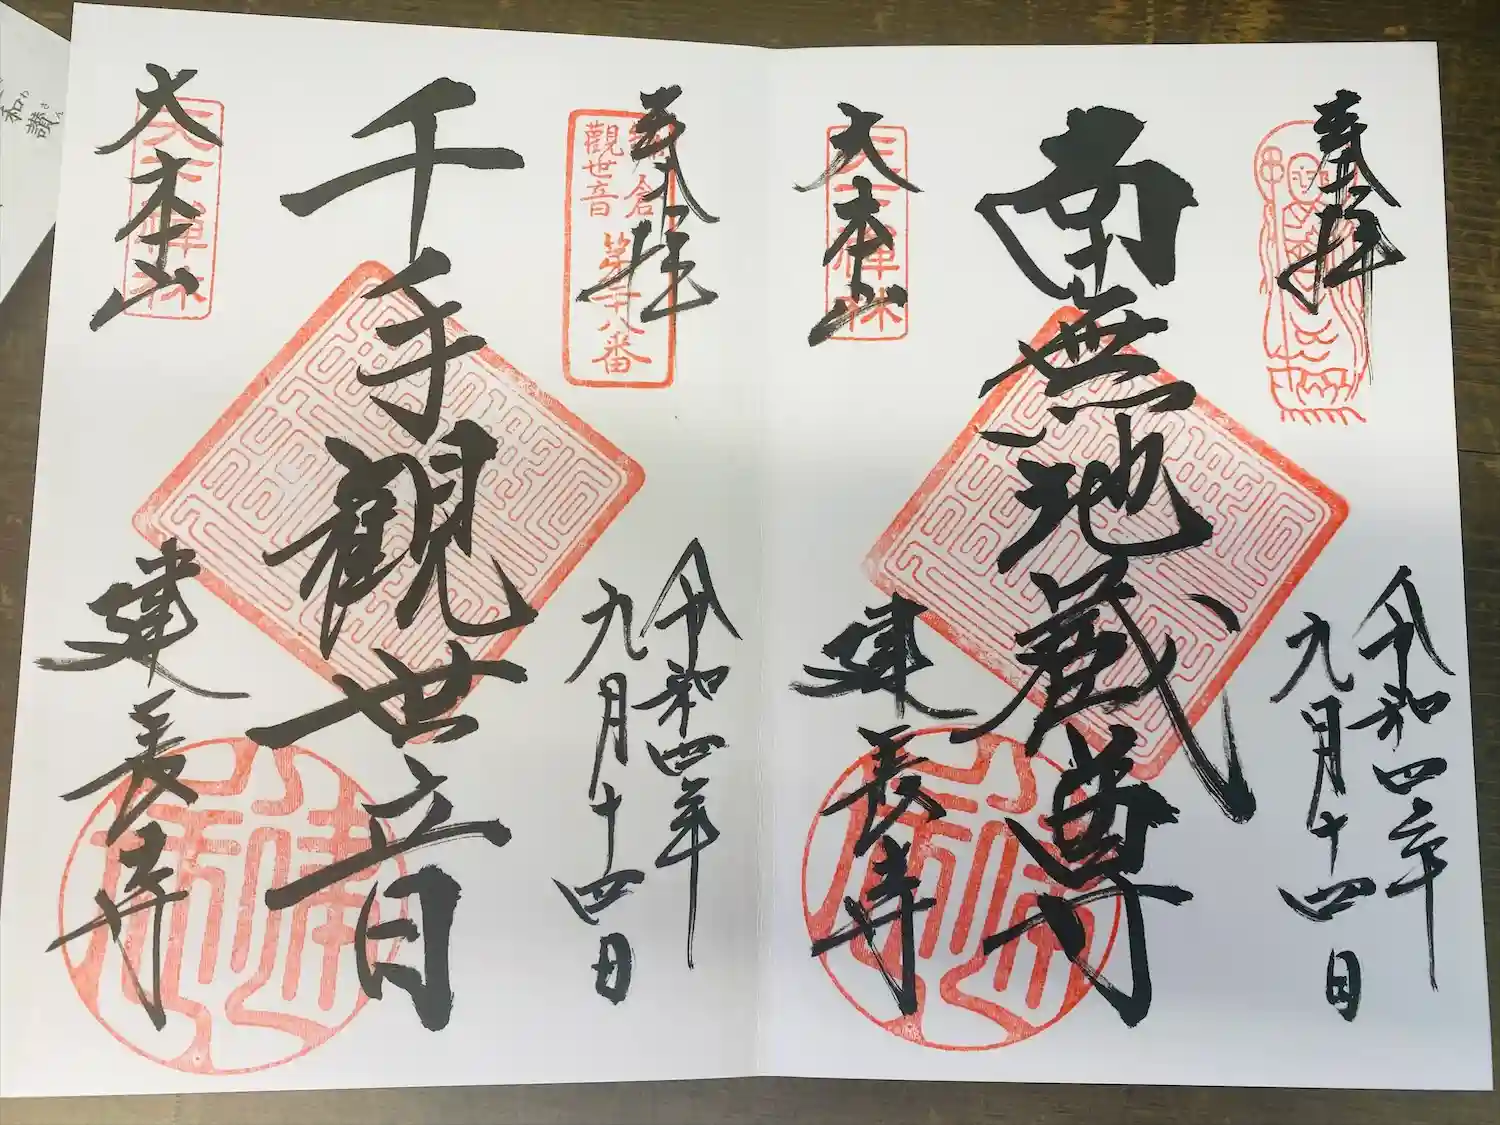 奉拝
令和四年
九月十四日
南無地蔵尊
大本山
建長寺
天下禅林
奉拝
令和四年
九月十四日
鎌倉
觀世音
第二十八番
千手観世音
大本山
建長寺
天下禅林
和讃
わさん